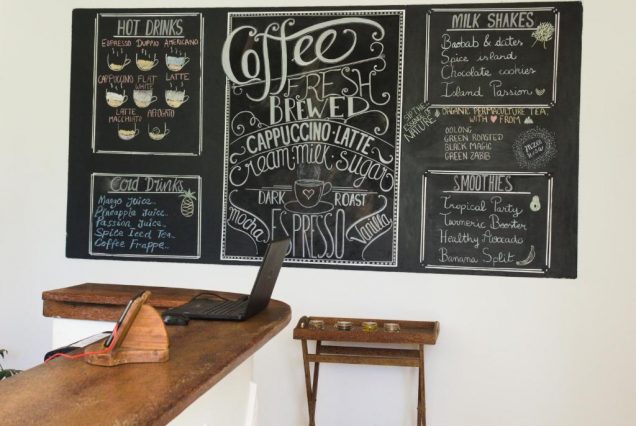 HOT DRINKS
ESPRESSO DOPPIO AMERICANO
CAPPUCCINO FLAT WHITE LATTE
LATTE MACCHIATO AFFOGATO
Cold Drinks
Mango Juice
Pineapple Juice
Passion Juice
Spice Iced Tea
Coffee Frappe
Coffee
FRESH
BREWED
CAPPUCCINO·LATTE
Cream·milk·sugar
DARK ROAST
mocha ESPRESSO Vanilla
MILK SHAKES
Baobab & dates
Spice island
Chocolate cookies
Island Passion
ORGANIC PERMACULTURE TEA,
WITH ♥ FROM
OOLONG
GREEN ROASTED
BLACK MAGIC
GREEN ZABIB
SMOOTHIES
Tropical Party
Turmeric Booster
Healthy Avocado
Banana Split